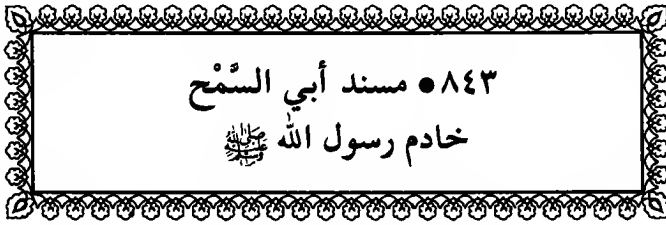 ٨٤٣ • مسند أبي السَّمْح
خادم رسول الله ﷺ